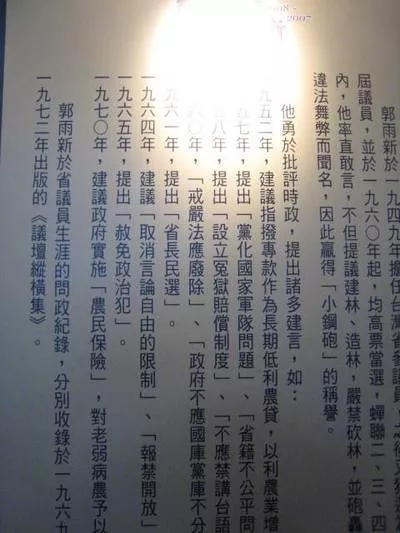 2007
郭雨新於一九四九年擔任台灣省參議員，之後又獲選
屆議員，並於一九六〇年起，均高票當選，蟬聯二、三、四
內，他率直敢言，不但提議建林、造林，嚴禁砍林，並砲轟
違法舞弊而聞名，因此贏得「小鋼砲」的稱譽。
他勇於批評時政，提出諸多建言，如：
九五二年，建議指撥專款作為長期低利農貸，以利農業增
五七年，提出「黨化國家軍隊問題」、「省籍不公平問
八年，提出「設立冤獄賠償制度」、「不應禁講台語
〇年，「戒嚴法應廢除」、「政府不應國庫黨庫不分
九六一年，提出「省長民選」。
一九六四年，建議「取消言論自由的限制」、「報禁開放」
一九六五年，提出「赦免政治犯」。
一九七〇年，建議政府實施「農民保險」，對老弱病農予以
郭雨新於省議員生涯的問政紀錄，分別收錄於一九六九
一九七二年出版的《議壇縱橫集》。